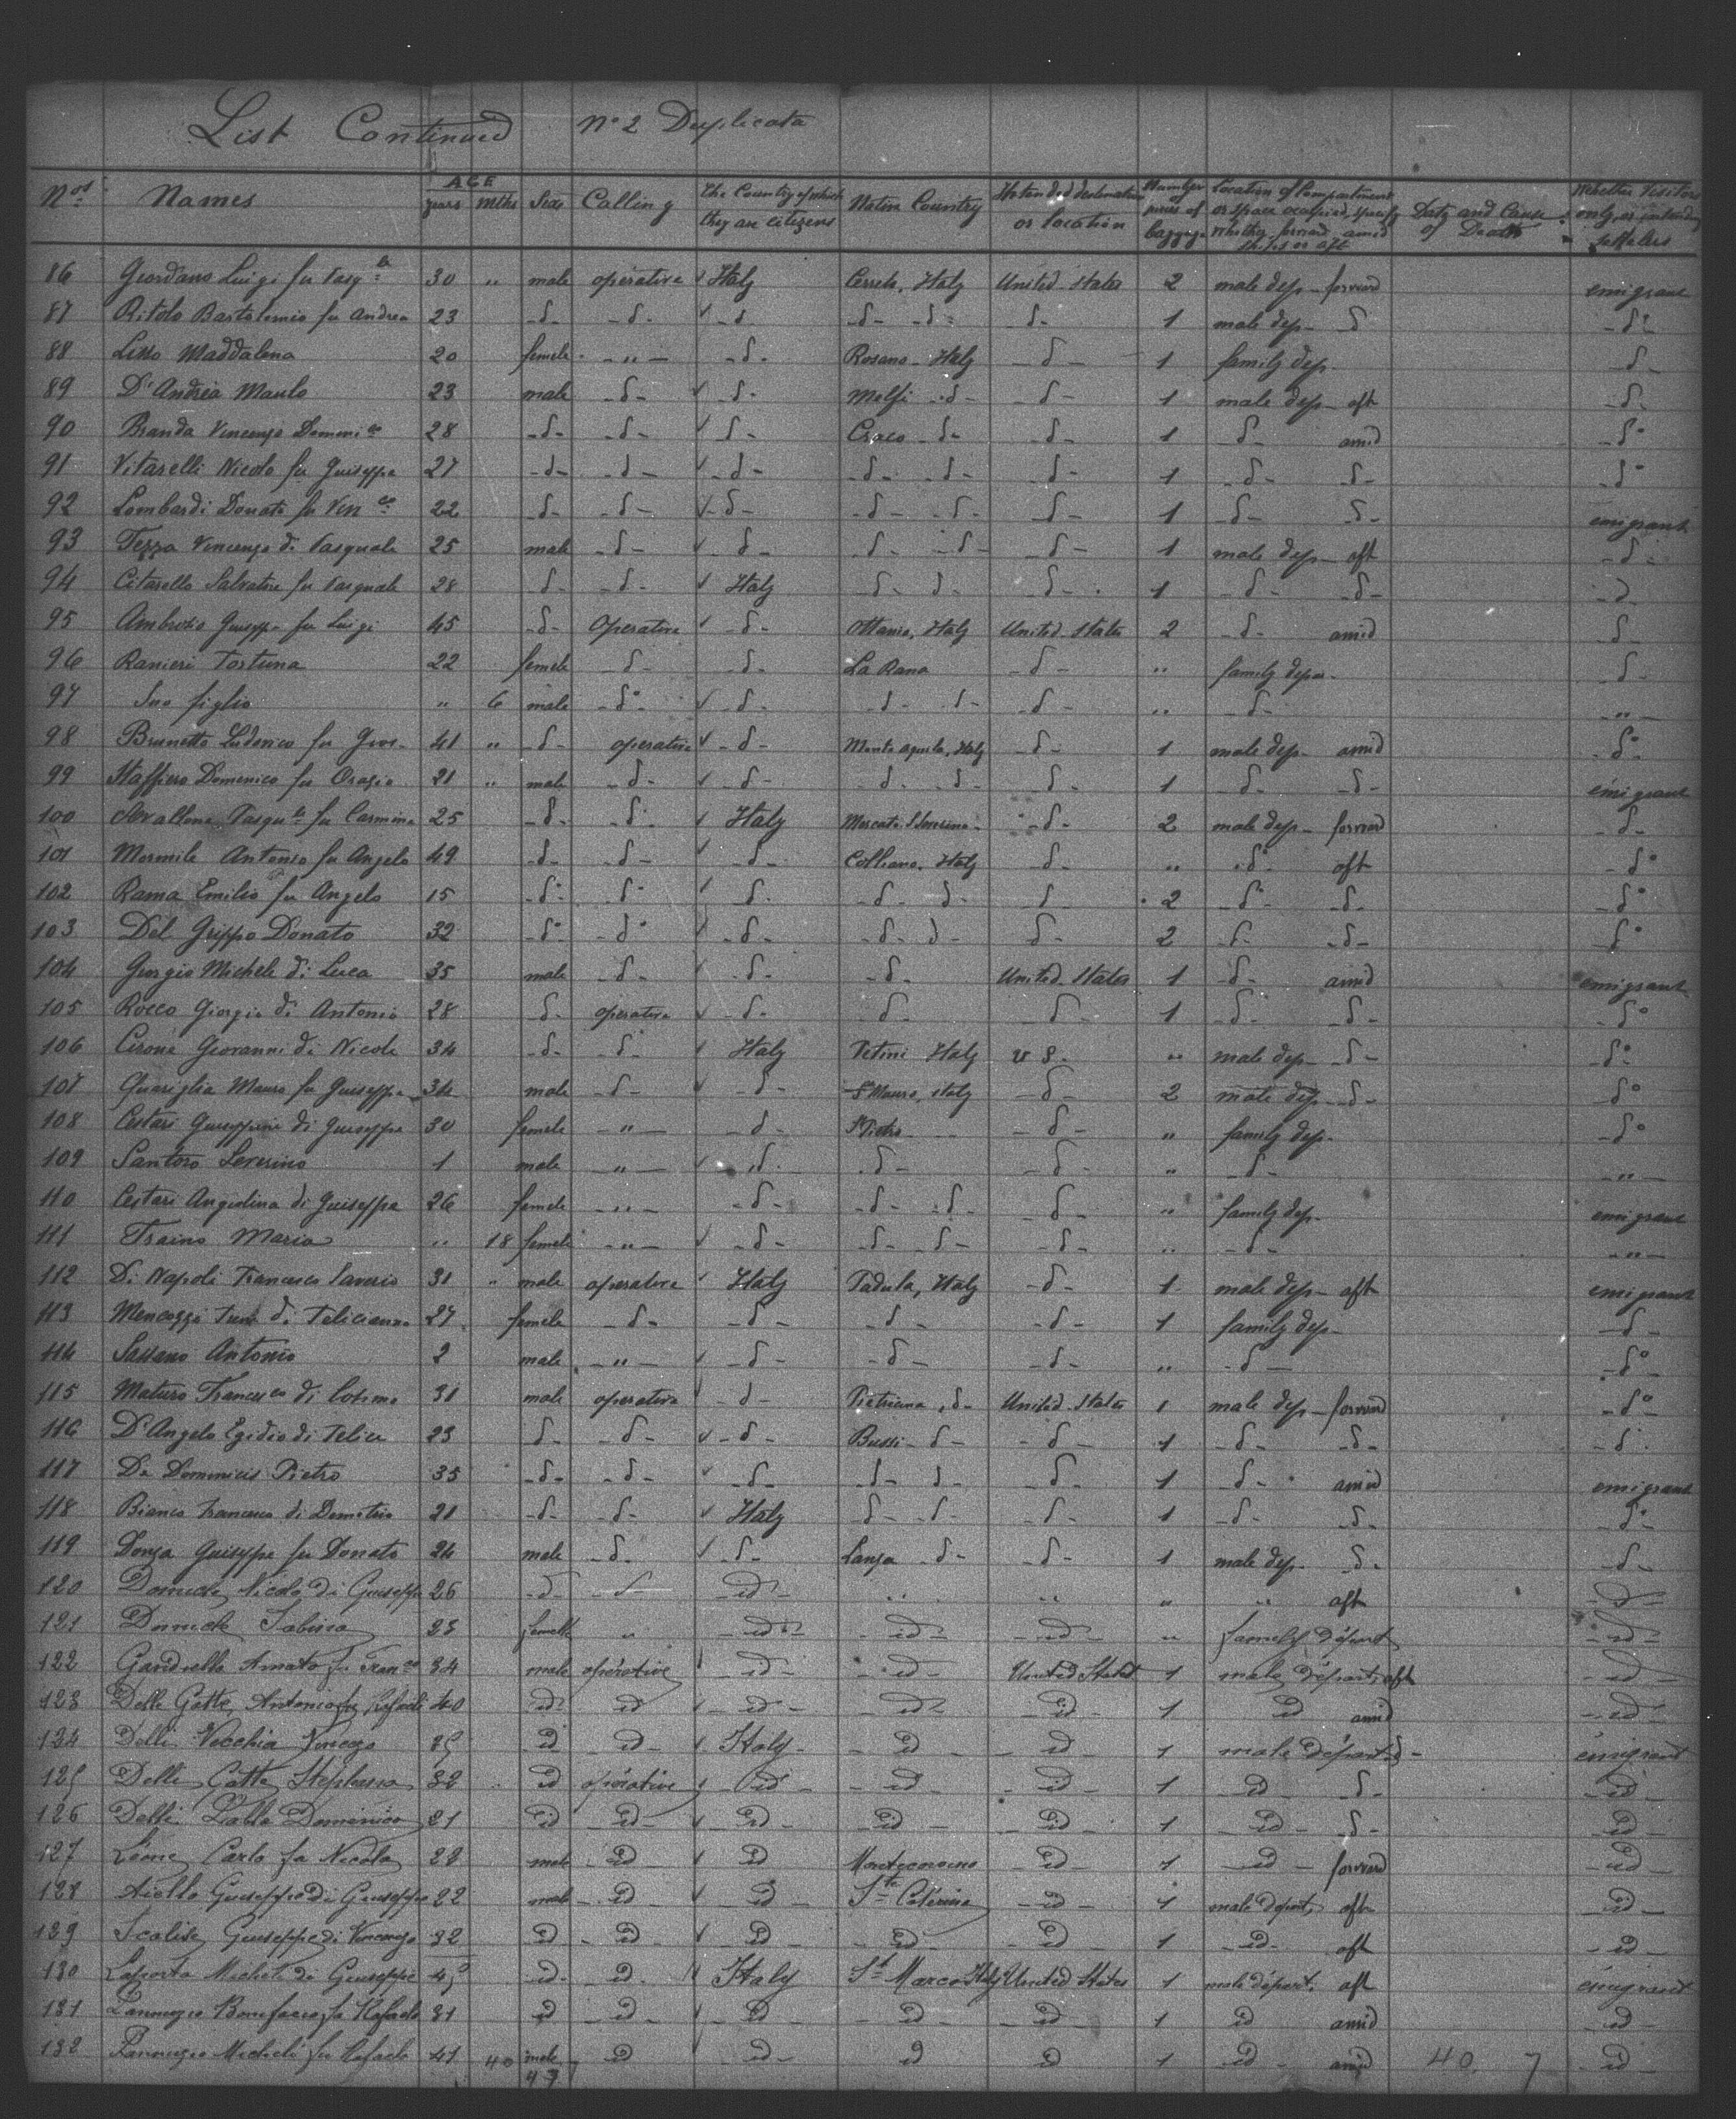 List Continued N° 2 Duplicata
Nos Names AGE years Mths Sex Calling The Country of which they are citizens Native Country Intended destination or location Number of pieces of baggage Location of Compartment or space occupied, specify whether forward amid ships or aft Date and Cause of Death Whether Visitors only, or intending settlers
86 Giordano Luigi fu Pasqle 30 " male operative Italy Cerreto, Italy United States 2 male dep - forward emigrant
87 Ritolo Bartolomio fu Andrea 23 -d- -d- -d- -d- -d- -d- 1 male dep - d -d-
88 Lisso Maddalena 20 female - " - -d- Rosano - Italy -d- 1 family dep - -d-
89 D'Andrea Manlo 23 male -d- -d- Melfi -d- -d- 1 male dep - aft -d-
90 Branda Vincenzo Domenico 28 -d- -d- -d- Craco -d- -d- 1 -d- amid -d°
91 Vitarelli Nicolo fu Guiseppe 27 -d- -d- -d- -d- -d- -d- 1 -d- -d- -d°
92 Lombardi Donato fu Vinco 22 -d- -d- -d- -d- -d- -d- 1 -d- -d- emigrant
93 Tezza Vincenzo di Pasquale 25 male -d- -d- -d- -d- -d- 1 male dep - aft -d-
94 Citarella Salvatore fu Pasquale 28 -d- -d- Italy -d- -d- -d- 1 -d- -d- -d-
95 Ambrosio Guiseppe fu Luigi 45 -d- Operative -d- Ottania, Italy United States 2 -d- amid -d-
96 Ranieri Fortuna 22 female -d- -d- La Rana -d- " family depa- -d-
97 Suo figlio " 6 male -d° -d- -d- -d- -d- " -d- - " -
98 Brunetto Ludovico fu Giov- 41 " -d- operative -d- Monte aquila, Italy -d- 1 male dep - amid -d°
99 Staffiero Domenico fu Orazio 21 " male -d- -d- -d- -d- -d- 1 -d- -d- emigrant
100 Avallone Pasqule fu Carmine 25 -d- -d- Italy Mercato S Severino - -d- 2 male dep - forward -d-
101 Mormile Antonio fu Angelo 49 -d- -d- -d- Colliano, Italy -d- " -d- aft -d°
102 Rama Emilio fu Angelo 15 -d- -d- -d- -d- -d- -d- 2 -d- -d- -d°
103 Del Grippo Donato 32 -d° -d° -d- -d- -d- d- 2 -d- -d- -d°
104 Giorgio Michele di Luca 35 male -d- -d- -d- United States 1 -d- amid emigrant
105 Rocco Giorgio di Antonio 28 -d- operative -d- -d- -d- 1 -d- -d- -d°
106 Cirone Giovanni di Nicola 34 -d- -d- Italy Petini Italy U S. " male dep - -d- -d°
107 Quariglia Mauro fu Guiseppe 34 male -d- -d- S Mauro, Italy -d- 2 male dep - -d- -d°
108 Cestari Guiseppina di Guiseppe 30 female - " - -d- S Pietro -d- " family dep - -d°
109 Santoro Severino 1 male - " - -d- -d- -d- " -d- - " -
110 Cestari Angiolina di Guiseppe 26 female - " - -d- -d- -d- -d- " family dep - emigrant
111 Traino Maria " 18 female - " - -d- -d- -d- -d- " -d- - " -
112 Di Napoli Francesco Saverio 31 " male operative Italy Padula, Italy -d- 1 male dep - aft emigrant
113 Mencozzi di Feliciano 27 female -d- -d- -d- -d- 1 family dep - -d-
114 Sassano Antonio 2 male - " - -d- -d- -d- " -d- -d°
115 Maturo Francesco di Cosimo 31 male operative -d- Pietriana, d- United States 1 male dep - forward -d°
116 D'Angelo Egidio di Felice 23 -d- -d- -d- Bussi -d- -d- 1 -d- -d- -d-
117 De Dominicis Pietro 35 -d- -d- -d- -d- -d- -d- 1 -d- amid emigrant
118 Bianco Francesco di Demetrio 21 -d- -d- Italy -d- -d- -d- 1 -d- -d- -d-
119 Donza Guiseppe fu Donato 24 male -d- -d- Lanza -d- -d- 1 male dep - -d- -d-
120 Domicele Nicola di Guiseppe 26 -d- -d- -id- " " " " aft -id-
121 Domicele Sabina 23 female " -id- -id- -id- " family départ -id-
122 Gandrella Amato fu Franco 34 male opérative -id- -id- United States 1 male départ, aft -id-
123 Delle Gatte, Antonio fu Rafaele 40 id id -id- -id- id 1 id amid -id-
124 Delli Vecchia Vincenzo 25 id -id- Italy - id id 1 male départ -d- émigrant
125 Delle Catte Stephano 32 id opérative id id id 1 id -d- -id-
126 Delli Latta Domenico 21 id id id id id 1 id -d- -id-
127 Leone Carlo fu Nicola 28 male id id Montecorvino id 1 id forward -id-
128 Aiello Guiseppe di Guiseppe 22 male id id Ste Caterina -id- 1 male départ, aft -id-
129 Scalise Guiseppe di Vincenzo 32 id id id id id 1 -id- aft -id-
130 Laporta Michele di Guiseppe 45 id id Italy St Marco Italy United States 1 male départ, aft émigrant
131 Pannuzio Bonifacio fu Rafaele 31 id id id id id 1 id amid -id-
132 Pannuzio Michele fu Rafaele 41 40 male id id id id 1 id amid 40. 7 -id-
47